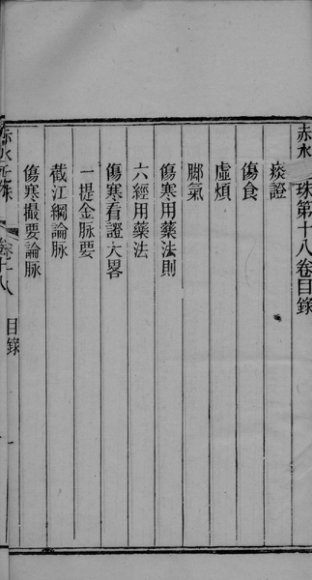 赤水 珠第十八卷目錄
痰證
傷食
虛煩
腳氣
傷寒用藥法則
六經用藥法
傷寒看證大畧
一提金脉要
截江綱論脉
傷寒撮要論脉
赤水 珠 卷十八 目錄